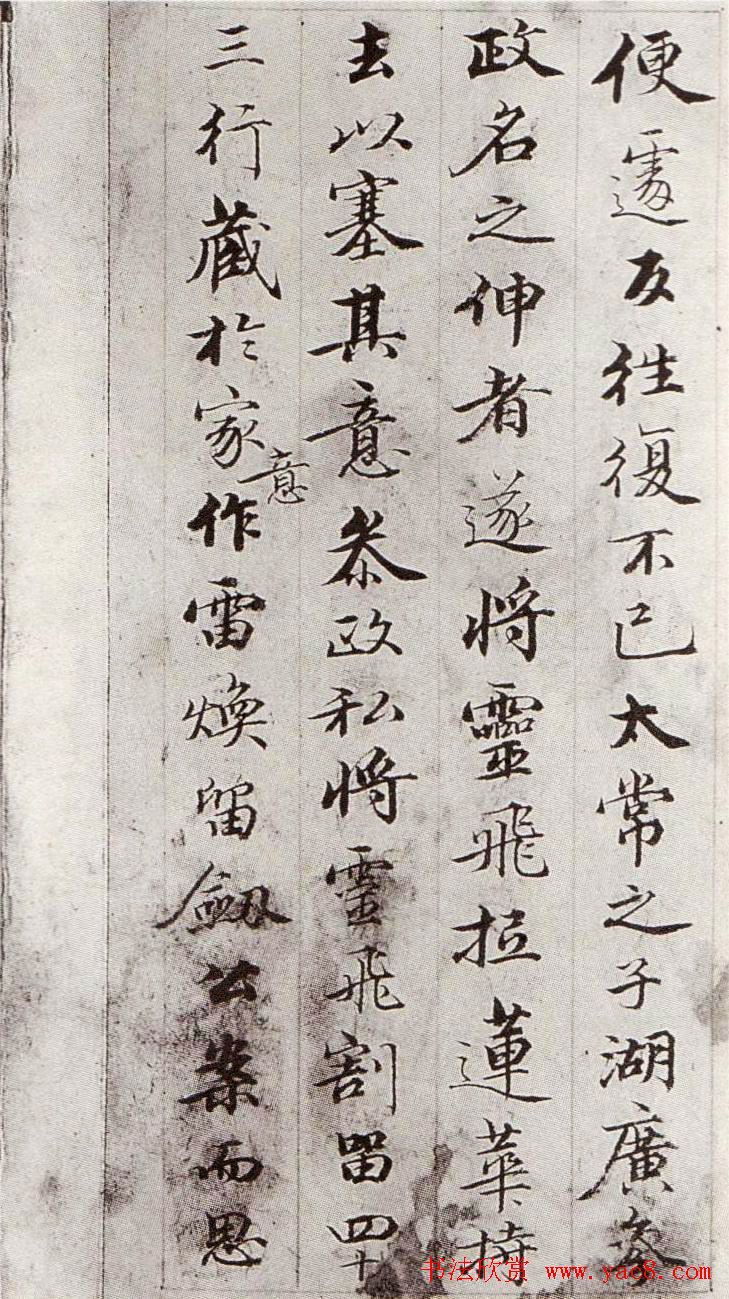 便遽反往復不已太常之子湖廣叅
政名之伸者遂將靈飛蓮華持
去以塞其意叅政私將靈飛割留四十
三行藏於家意作雷煥留劔公案而思
书法欣赏 www.yac8.com